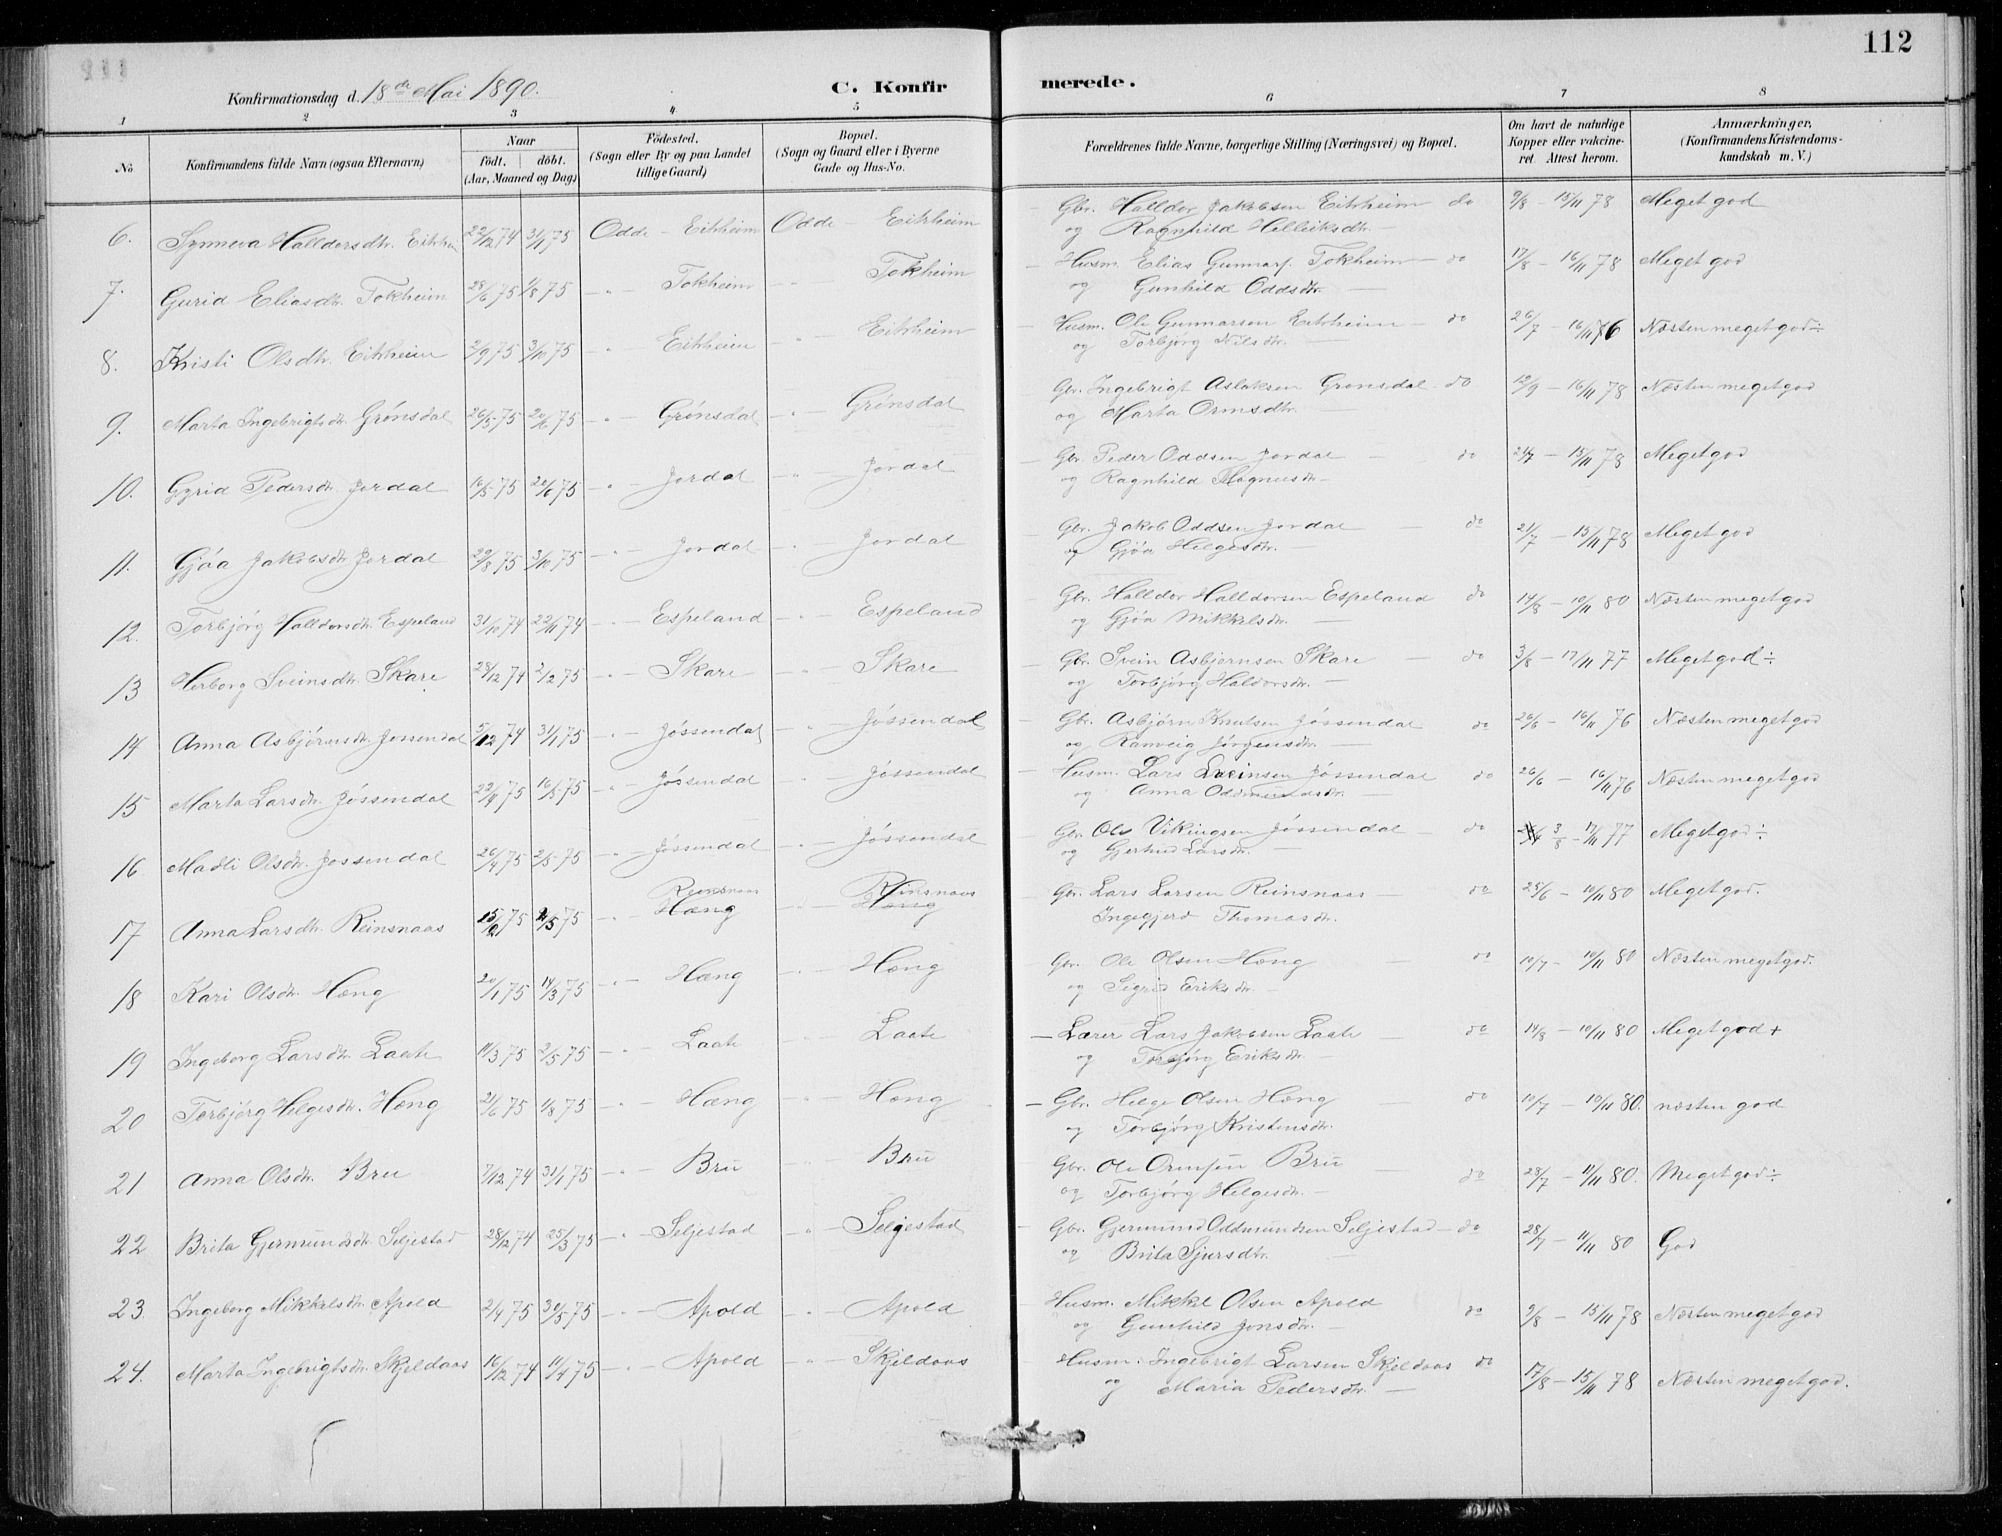 112
Konfirmationsdag d. 18de Mai 1890.
C. Konfirmerede.
1 2 3 4 5 6 7 8
No.
Konfirmandens fulde Navn (ogsaa Efternavn)
Naar
født. døbt.
(Aar, Maaned og Dag)
Fødested.
(Sogn eller By og paa Landet
tillige Gaard)
Bopæl.
(Sogn og Gaard eller i Byerne
Gade og Hus-No.
Forældrenes fulde Navne, borgerlige Stilling (Næringsvei) og Bopæl.
Om havt de naturlige
Kopper eller vakcine-
ret. Attest herom.
Anmærkninger,
(Konfirmandens Kristendoms-
kundskab m. V.)
6. Synneva Halldorsdtr. Eitrheim 29/12 74 31/1 75 Odde - Eitrheim Odde - Eitrheim Gbr. Halldor Jakobsen Eitrheim do 9/8 - 15/11 78 Meget god
og Ragnhild Helleiksdtr. -
7. Gurid Eliasdtr. Tokheim 28/6 75 1/8 75 - " - Tokheim - " - Tokheim - Husm. Elias Gunnars. Tokheim - do 17/8 - 16/11 78 Meget god
og Gunhild Oddsdtr. -
8. Kristi Olsdtr. Eitrheim 2/9 75 3/10 75 - " - Eitrheim - " - Eitrheim - Husm. Ole Gunnarsen Eitrheim - do 26/7 - 16/11 76 Næsten meget god ÷
og Torbjørg Nilsdtr. -
9. Marta Ingebrigtsdtr. Grønsdal 26/5 75 20/6 75 - " - Grønsdal - " - Grønsdal Gbr. Ingebrigt Aslaksen Grønsdal - do 12/9 - 16/11 78 Næsten meget god
og Marta Ormsdtr. -
10. Gyrid Pedersdtr. Jordal 16/5 75 20/6 75 - " - Jordal - " - Jordal - Gbr. Peder Oddsen Jordal - do 21/7 - 15/11 78 Meget god
og Ragnhild Magnusdtr. -
11. Gjøa Jakobsdtr. Jordal 29/8 75 3/10 75 - " - Jordal - " - Jordal Gbr. Jakob Oddsen Jordal - do 21/7 - 15/11 78 Meget god
og Gjøa Helgesdtr. -
12. Torbjørg Halldorsdtr. Espeland 31/10 74 22/11 74 - " - Espeland - " - Espeland Gbr. Halldor Halldorsen Espeland do 14/8 - 10/11 80 Næsten meget god
og Gjøa Mikkelsdtr. -
13 Herborg Sveinsdtr. Skare 28/12 74 2/2 75 - " - Skare - " - Skare - Gbr. Svein Asbjørnsen Skare - do 3/8 - 17/11 77 Meget god ÷
og Torbjørg Haldorsdtr. -
14 Anna Asbjørnsdtr. Jøssendal 5/12 74 31/1 75 - " - Jøssendal - " - Jøssendal - Gbr. Asbjørn Knutsen Jøssendal do 26/6 - 16/11 76 Næsten meget god
og Ranveig Jørgensdtr. -
15 Marta Larsdtr. Jøssendal 22/4 75 16/5 75 - " - Jøssendal - " - Jøssendal - Husm. Lars Sveinsen Jøssendal do 26/6 - 16/11 76 Næsten meget god
og Anna Oddmundsdtr. -
16 Madli Olsdtr. Jøssendal 26/4 75 2/5 75 - " - Jøssendal - " - Jøssendal - Gbr. Ole Vikingsen Jøssendal - do 3/8 - 17/11 77 Meget god ÷
og Gjertrud Larsdtr. -
17 Anna Larsdtr. Reinsnaas 15/2 75 2/5 75 - " - Reinsnaas Hæng - " - Reinsnaas Hæng - Gbr. Lars Larsen Reinsnaas - do 25/6 - 10/11 80 Meget god.
Ingegjerd Thomasdtr.
18 Kari Olsdtr. Hæng 20/1 75 14/3 75 - " - Hæng - " - Hæng - Gbr. Ole Olsen Hæng - do 10/7 - 10/11 80 Næsten meget god.
og Sigrid Eriksdtr. -
19 Ingeborg Larsdtr. Laate 11/3 75 2/5 75 - " - Laate - " - Laate - Lærer Lars Jakobsen Laate - do 14/8 - 10/11 80 Meget god +
og Torbjørg Eriksdtr. -
20 Torbjørg Helgesdtr. Hæng 21/6 75 1/8 75 - " - Hæng - " - Hæng - Gbr. Helge Olsen Hæng - do 10/7 - 10/11 80. næsten god
og Torbjørg Kristensdtr.
21 Anna Olsdtr. Bru 7/12 74 31/1 75 - " - Bru - " - Bru Gbr. Ole Ormsen Bru - do 28/7 - 11/11 80. Meget god ÷
og Torbjørg Helgesdtr. -
22 Brita Gjermundsdtr. Seljestad 28/12 74 25/3 75 - " - Seljestad - " - Seljestad - Gbr. Gjermund Oddmundsen Seljestad - do 28/7 - 11/11 80 God
og Brita Sjursdtr. -
23. Ingeborg Mikkelsdtr. Apold 2/4 75 30/5 75 - " - Apold - " - Apold - Husm. Mikkel Olsen Apold do 9/8 - 15/11 78 Næsten meget god
og Gunhild Jonsdtr. -
24. Marta Ingebrigtsdtr. Skjeldaas 16/12 74 11/4 75 - " - Apold - " - Skjeldaas Husm. Ingebrigt Larsen Skjeldaas do 17/8 - 15/11 78 Næsten meget god.
og Maria Pedersdtr. -